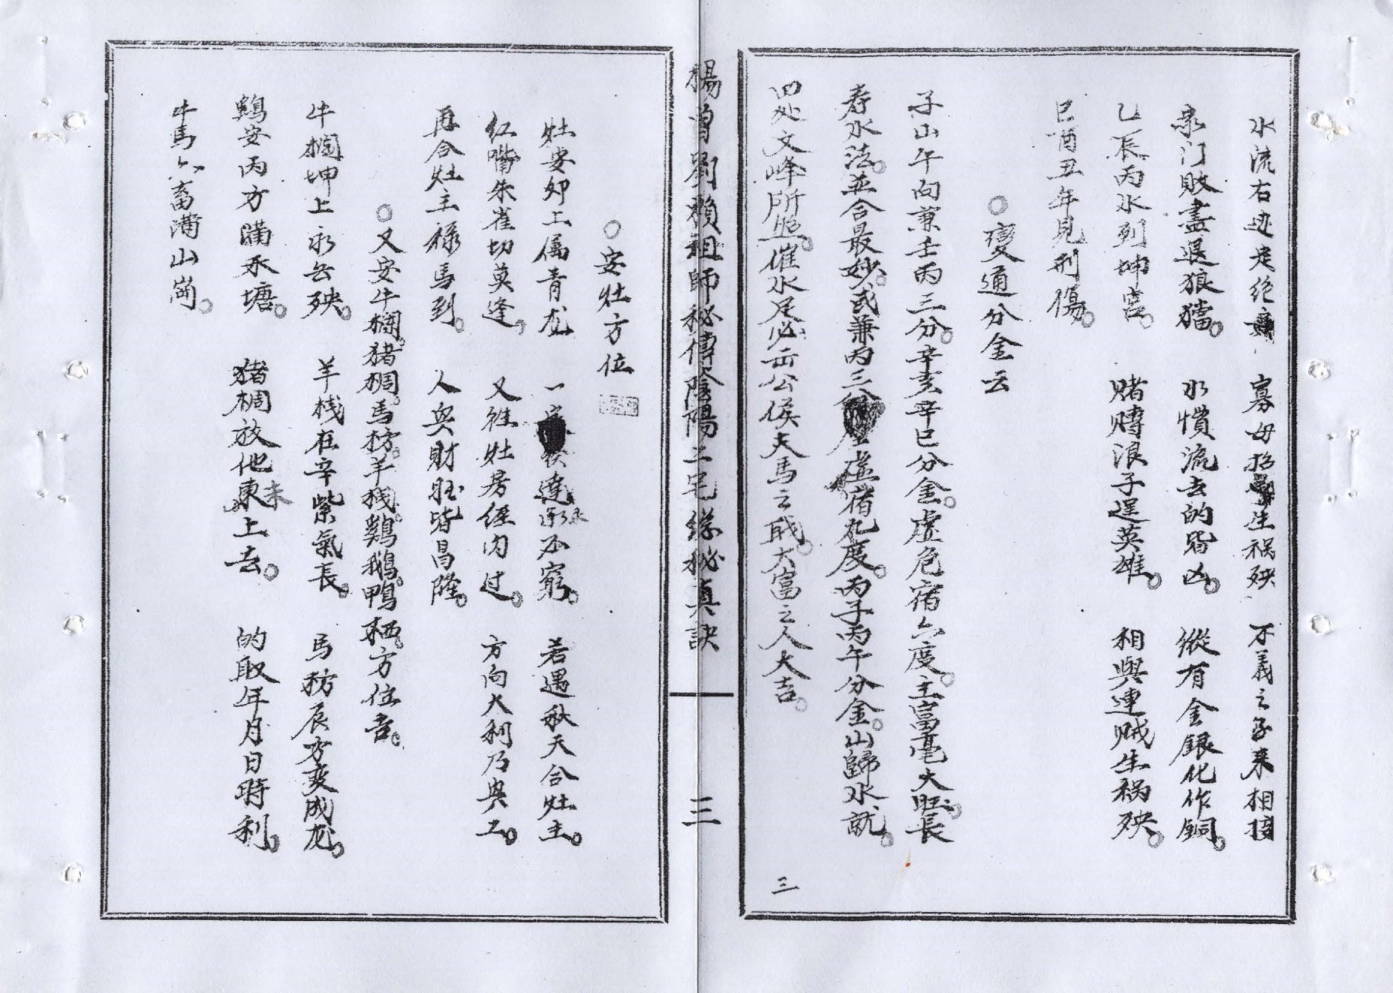 水流右边走绝 寡母招 生祸殃 不義之子来相接
敗盡退狼犺。 水慣流去的皆凶。 縱有金銀化作銅。
乙辰丙水到坤宫。 賭賻浪子逞英雄。 相與連贼生祸殃。
巳酉丑年見刑傷。
○變通分金云
子山午向兼壬丙三分。辛亥辛巳分金。虚危宿六度。主富毫大旺。長
寿水法。並合最妙。或兼丙三 虚宿九度。丙子丙午分金。山歸水就。
四处文峰所照。催水足必出公侯夫馬之戝。大富之人大吉。
三
楊曾劉賴祖師秘傳陰陽二宅縂秘真訣
三
○安灶方位
灶安卯上属青龙 一 達 永不窮。 若遇秋天合灶主。
红嘴朱雀切莫逢。 又祥灶房经内过。 方向大利乃與工。
再合灶主禄馬到。 人與財旺皆昌隆。
○又安牛欄。猪棡。馬枋。羊栈。鷄鵝。鴨栖。方位吉。
牛棡坤上永無殃。 羊栈在辛紫氣長。 馬枋辰方变成龙。
鴨安丙方滿水塘。 猪棡放他東未上去。 的取年月日時利。
牛馬六畜满山崗。